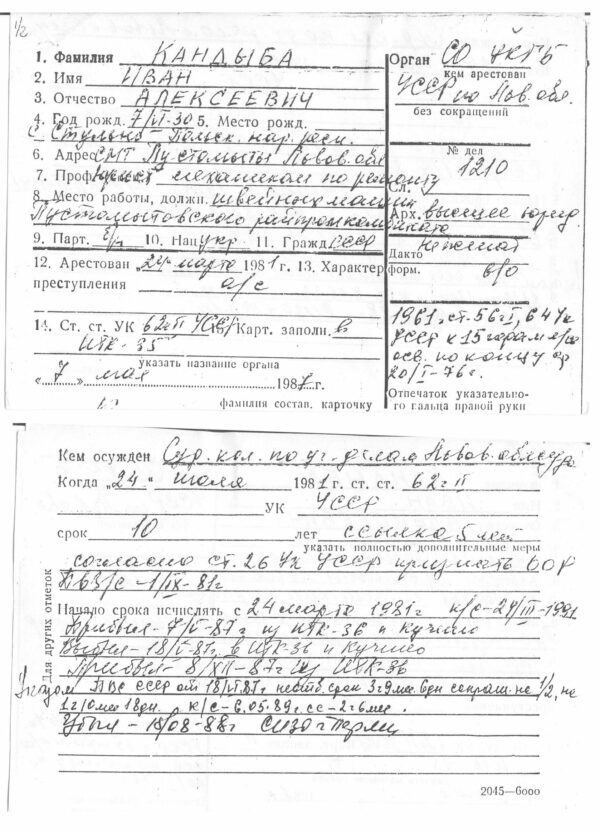 1/2
1. Фамилия КАНДЫБА
2. Имя ИВАН
3. Отчество АЛЕКСЕЕВИЧ
4. Год рожд. 7/VI-30 5. Место рожд.
с. Стульно - Польск. нар. респ.
6. Адрес СМТ Пустомыты Львов. обл.
7. Проф. юрист механиком по ремонту
8. Место работы, должн. швейных машин
Пустомытовского райпромкомбината
9. Парт. б/п 10. Нац укр. 11. Гражд СССР
12. Арестован „24“ марта 1981 г. 13. Характер
преступления а/с
14. Ст. ст. УК 62 ч II УССР Карт. заполн. в
ИТК-35
указать название органа
„7“ мая 1987 г.
фамилия состав. карточку
Орган СО УКГБ
кем арестован
УССР по Льв. обл.
без сокращений
№ дел
1210
Сл.
Арх. высшее юрид.
Дакто неженат
форм. в/о
1961 г. ст. 56 ч I, 64 УК
УССР к 15 годам л/св
осв. по концу ср
20/I-76 г.
Отпечаток указательно-
го пальца правой руки
Кем осужден Суд. кол. по уг. делам Львов. облсуда
Когда „24“ июля 1981 г. ст. ст. 62 ч II
УК УССР
срок 10 лет ссылка 5 лет
указать полностью дополнительные меры
согласно ст. 26 УК УССР признать ООР
1/IX-81г
Для других отметок
Начало срока исчислять с 24 марта 1981г к/с-24/III-1991
Прибыл - 7/V-87г из ИТК-36 п Кучино
Выбыл - 18/V-87г. в ИТК-36 п Кучино
Прибыл - 8/XII-87г из ИТК-36
Указом ПВС СССР от 18/VI.87г неотб. срок 3г9мес.6дн сокращ. на 1/2, на
1г10мес 18дн. к/с - 6.05.89г сс - 2г6мес.
Убыл - 18/08-88г СИЗО г Перми
2045—6000